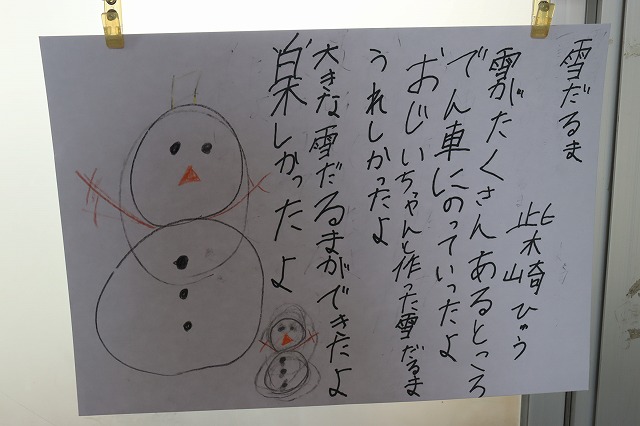 雪だるま
柴崎ひゅう
雪がたくさんあるところ
でん車にのっていったよ
おじいちゃんと作った雪だるま
うれしかったよ
大きな雪だるまができたよ
楽しかったよ